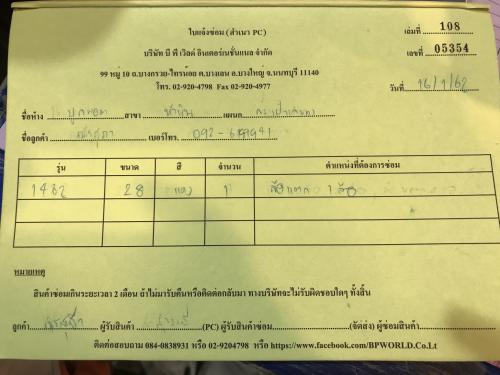 ใบแจ้งซ่อม (สำเนา PC)
เล่มที่ 108
บริษัท บี พี เวิลด์ อินเตอร์เนชั่นแนล จำกัด
เลขที่ 05354
99 หมู่ 10 ถ.บางกรวย-ไทรน้อย ต.บางเลน อ.บางใหญ่ จ.นนทบุรี 11140
โทร. 02-920-4798 Fax 02-920-4977
วันที่ 16/1/62
ชื่อห้าง สาขา แผนก
ชื่อลูกค้า เบอร์โทร.
รุ่น ขนาด สี จำนวน ตำแหน่งที่ต้องการซ่อม
1482 28 แดง 1 ล้อแตก 1 ล้อ
หมายเหตุ
สินค้าซ่อมเกินระยะเวลา 2 เดือน ถ้าไม่มารับคืนหรือติดต่อกลับมา ทางบริษัทจะไม่รับผิดชอบใดๆ ทั้งสิ้น
ลูกค้า ผู้รับสินค้า (PC) ผู้รับสินค้าซ่อม (จัดส่ง) ผู้ซ่อมสินค้า
ติดต่อสอบถาม 084-0838931 หรือ 02-9204798 หรือ https://www.facebook.com/BPWORLD.Co.Lt